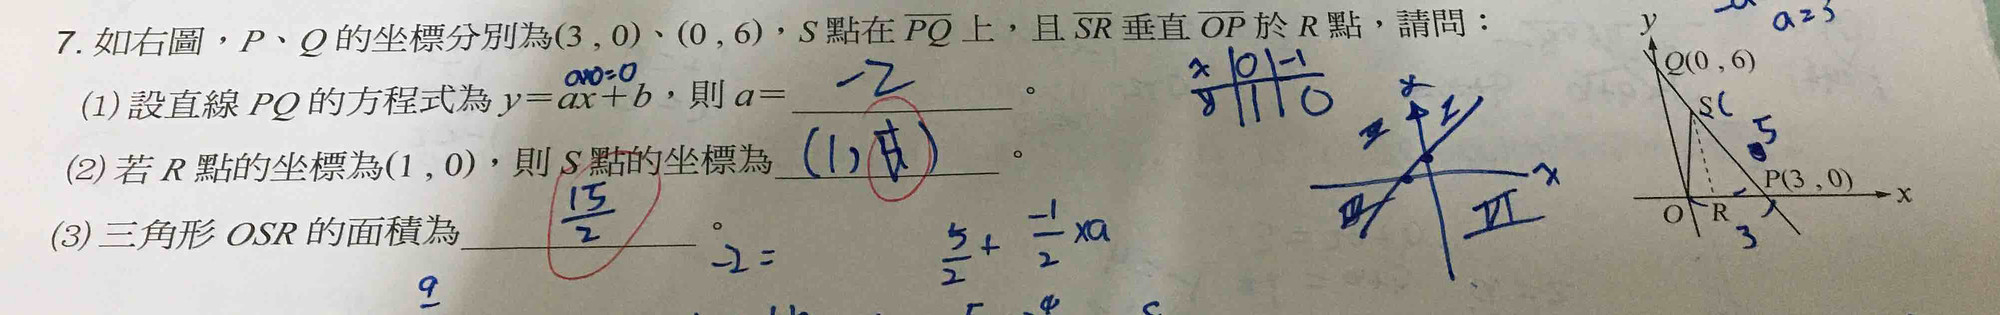 7. 如右圖，P、Q 的坐標分別為(3 , 0)、(0 , 6)，S 點在 PQ 上，且 SR 垂直 OP 於 R 點，請問：
a=3
a+0=0
(1) 設直線 PQ 的方程式為 y=ax+b，則 a= -2 。
(2) 若 R 點的坐標為(1 , 0)，則 S 點的坐標為 (1, ) 。
(3) 三角形 OSR 的面積為 15/2 。
x 0 -1
y 1 0
y
x
I
II
III
VI
-2=
5/2 + -1/2 ×a
9
y
Q(0 , 6)
S(
5
P(3 , 0)
O R x
3